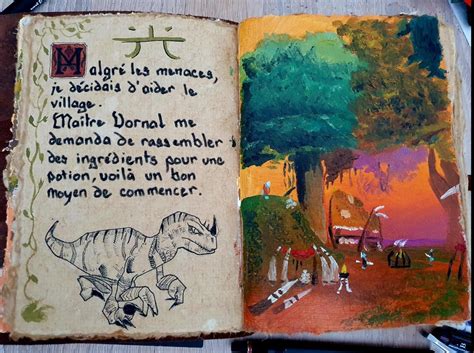 Malgré les menaces,
je décidais d'aider le
village.
Maître Vornal me
demanda de rassembler
des ingrédients pour une
potion, voilà un bon
moyen de commencer.